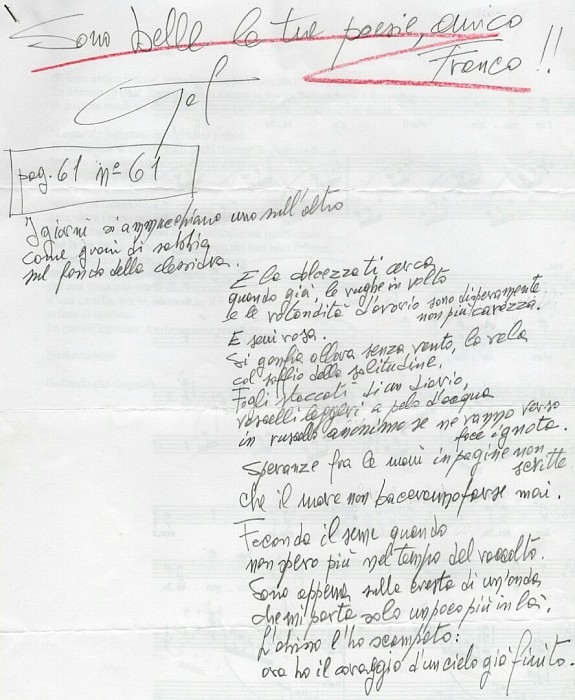 Sono belle le tue poesie, amico
Franco!!
pag. 61 nº 61
I giorni si ammucchiano uno sull'altro
come grani di sabbia
sul fondo della clessidra.
E la dolcezza ti cerca
quando già, le rughe in volto
e le rotondità d'avorio sono disperamente
non più carezza.
E sei rosa.
Si gonfia allora senza vento, la vela
col soffio della solitudine.
Fogli staccati di un diario,
vascelli leggeri a pelo d'acqua
in ruscello anonimo se ne vanno verso
foce ignota.
Speranze fra le mani in pagine non
scritte
che il mare non baceranno forse mai.
Fecondo il seme quando
non spero più nel tempo del raccolto.
Sono appena sulla cresta di un'onda
che mi porta solo un poco più in là.
L'abisso l'ho scampato:
ora ho il coraggio d'un cielo già finito.